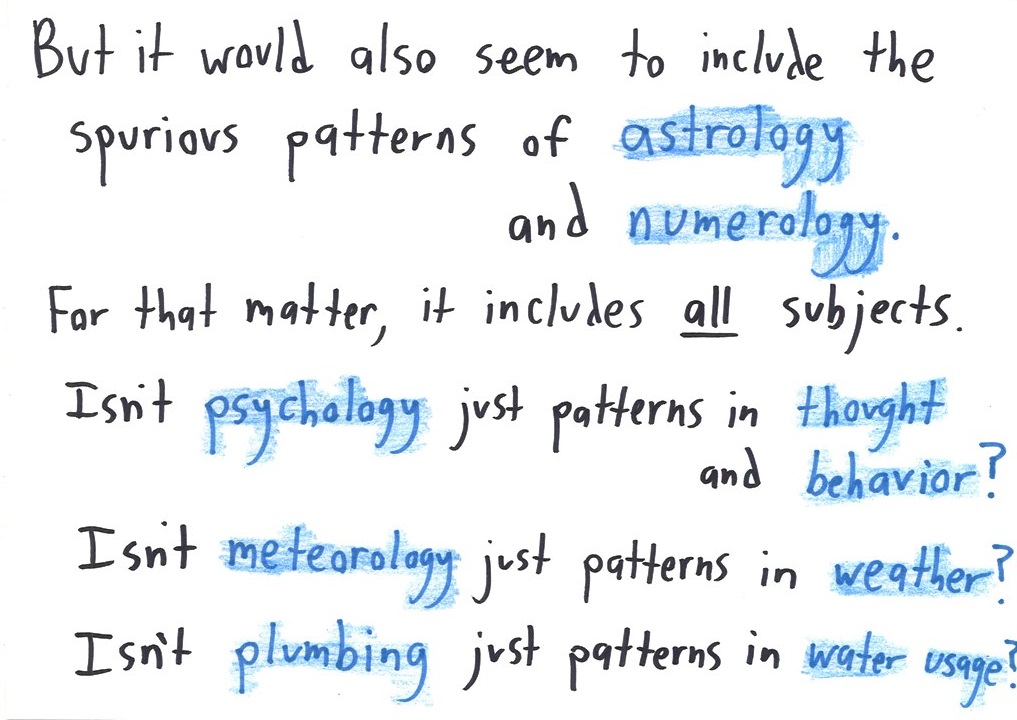 But it would also seem to include the
spurious patterns of astrology
and numerology.
For that matter, it includes all subjects.
Isn't psychology just patterns in thought
and behavior?
Isn't meteorology just patterns in weather?
Isn't plumbing just patterns in water usage?